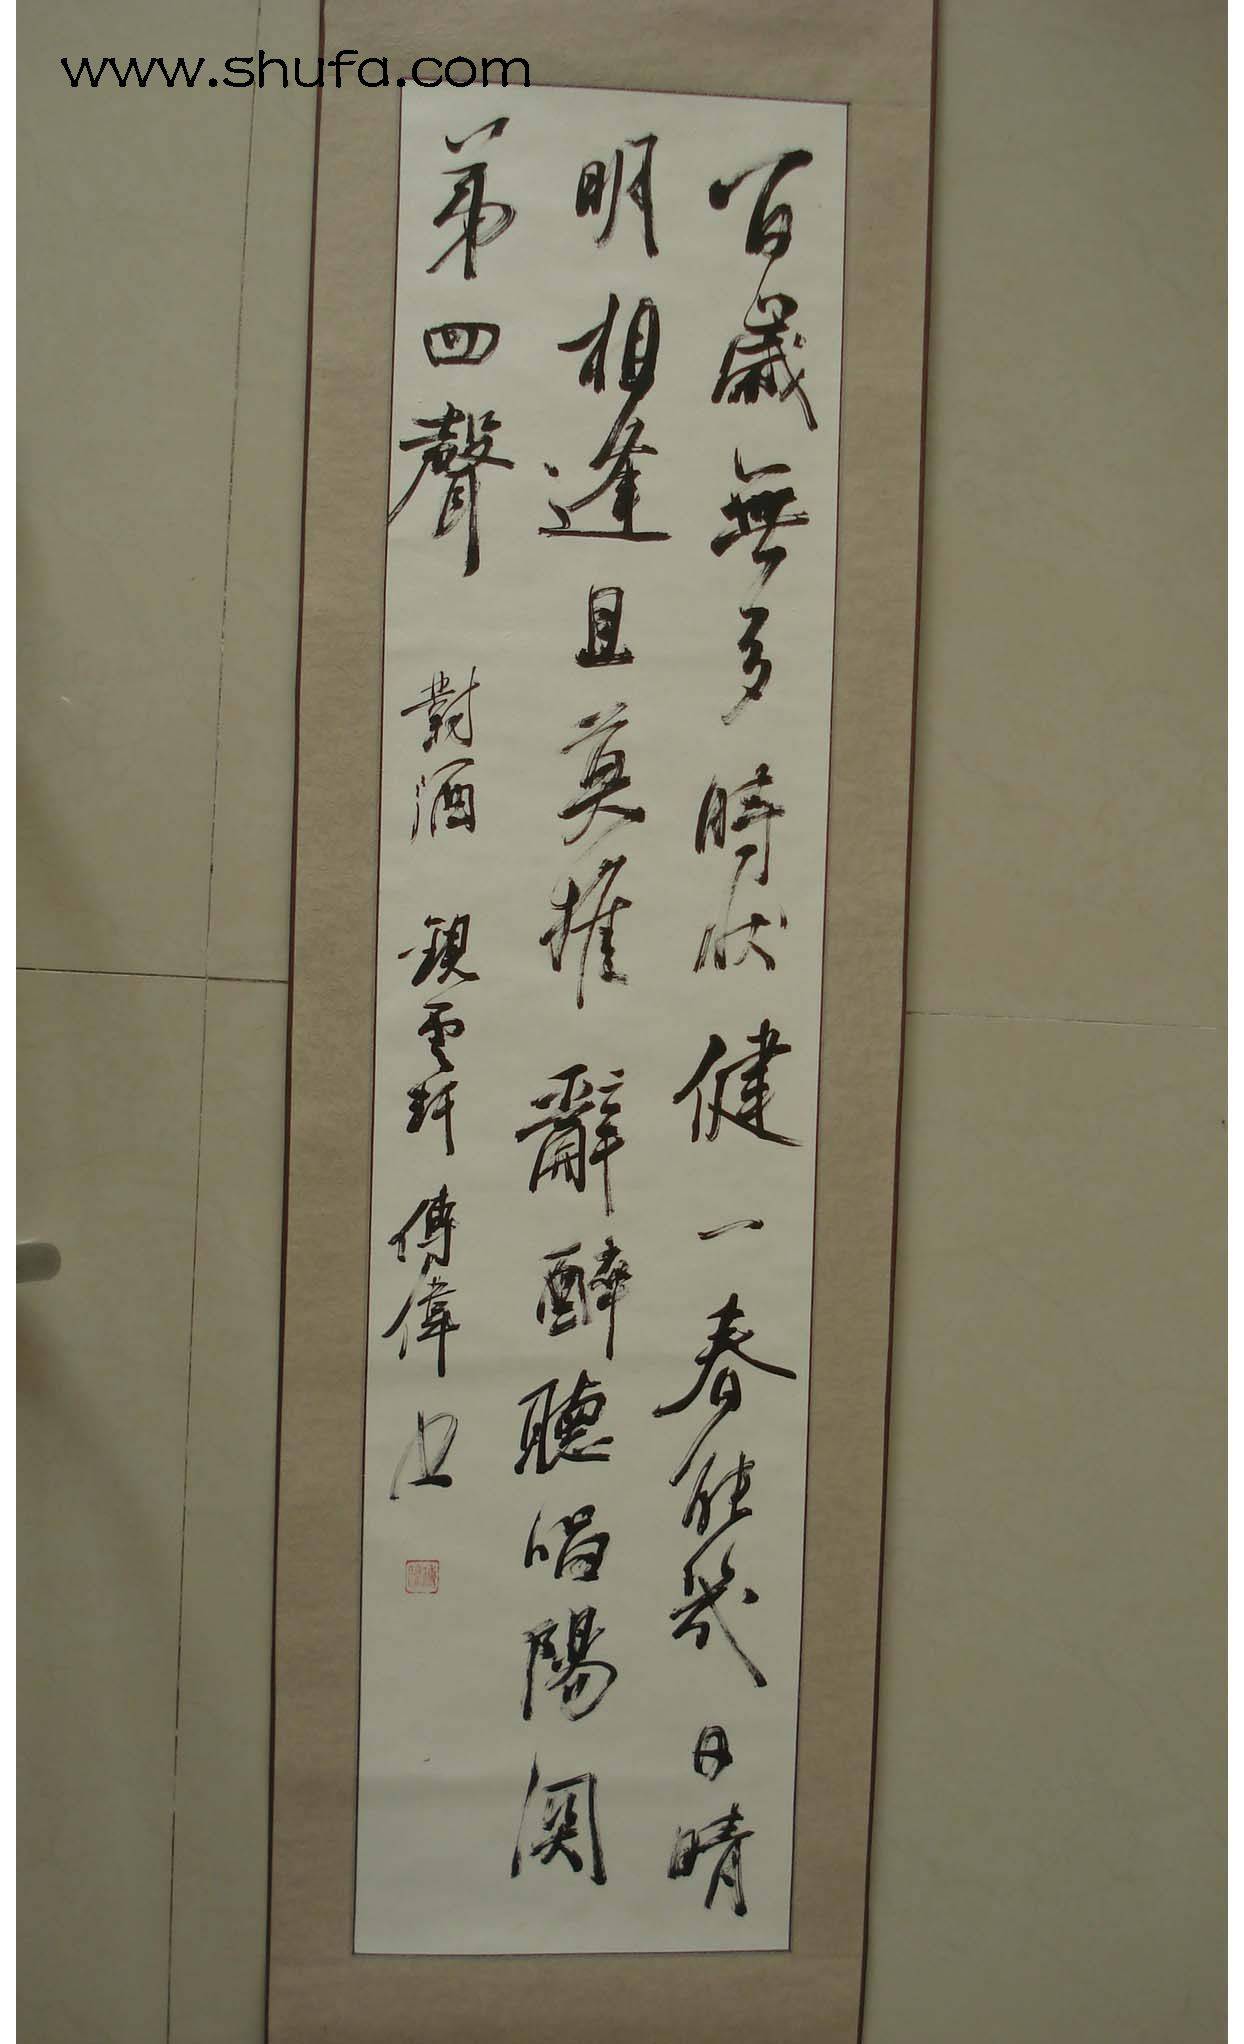 www.shufa.com
百歲無多時狀健一春能幾日晴
明相逢且莫推辭醉聽唱陽関
苐四聲 對酒 硯雲軒 傅偉书